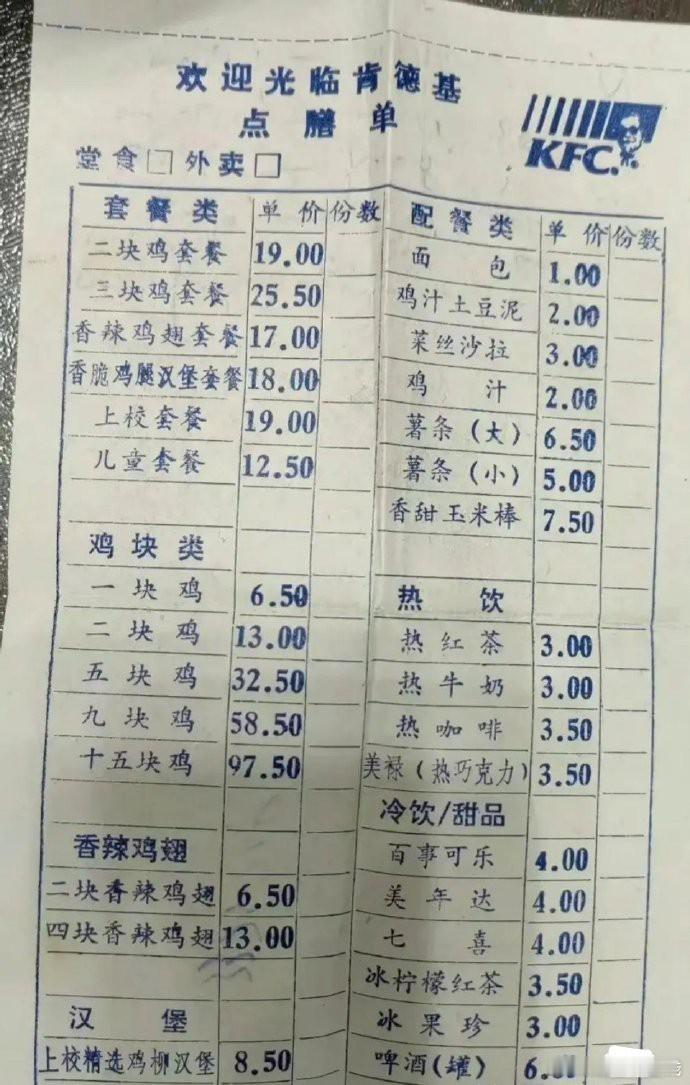 欢迎光临肯德基
点膳单
KFC.
堂食□ 外卖□
套餐类 单价 份数
二块鸡套餐 19.00
三块鸡套餐 25.50
香辣鸡翅套餐 17.00
香脆鸡腿汉堡套餐 18.00
上校套餐 19.00
儿童套餐 12.50
鸡块类
一块鸡 6.50
二块鸡 13.00
五块鸡 32.50
九块鸡 58.50
十五块鸡 97.50
香辣鸡翅
二块香辣鸡翅 6.50
四块香辣鸡翅 13.00
汉堡
上校精选鸡柳汉堡 8.50
配餐类 单价 份数
面包 1.00
鸡汁土豆泥 2.00
菜丝沙拉 3.00
鸡汁 2.00
薯条(大) 6.50
薯条(小) 5.00
香甜玉米棒 7.50
热饮
热红茶 3.00
热牛奶 3.00
热咖啡 3.50
美禄(热巧克力) 3.50
冷饮/甜品
百事可乐 4.00
美年达 4.00
七喜 4.00
冰柠檬红茶 3.50
冰果珍 3.00
啤酒(罐)